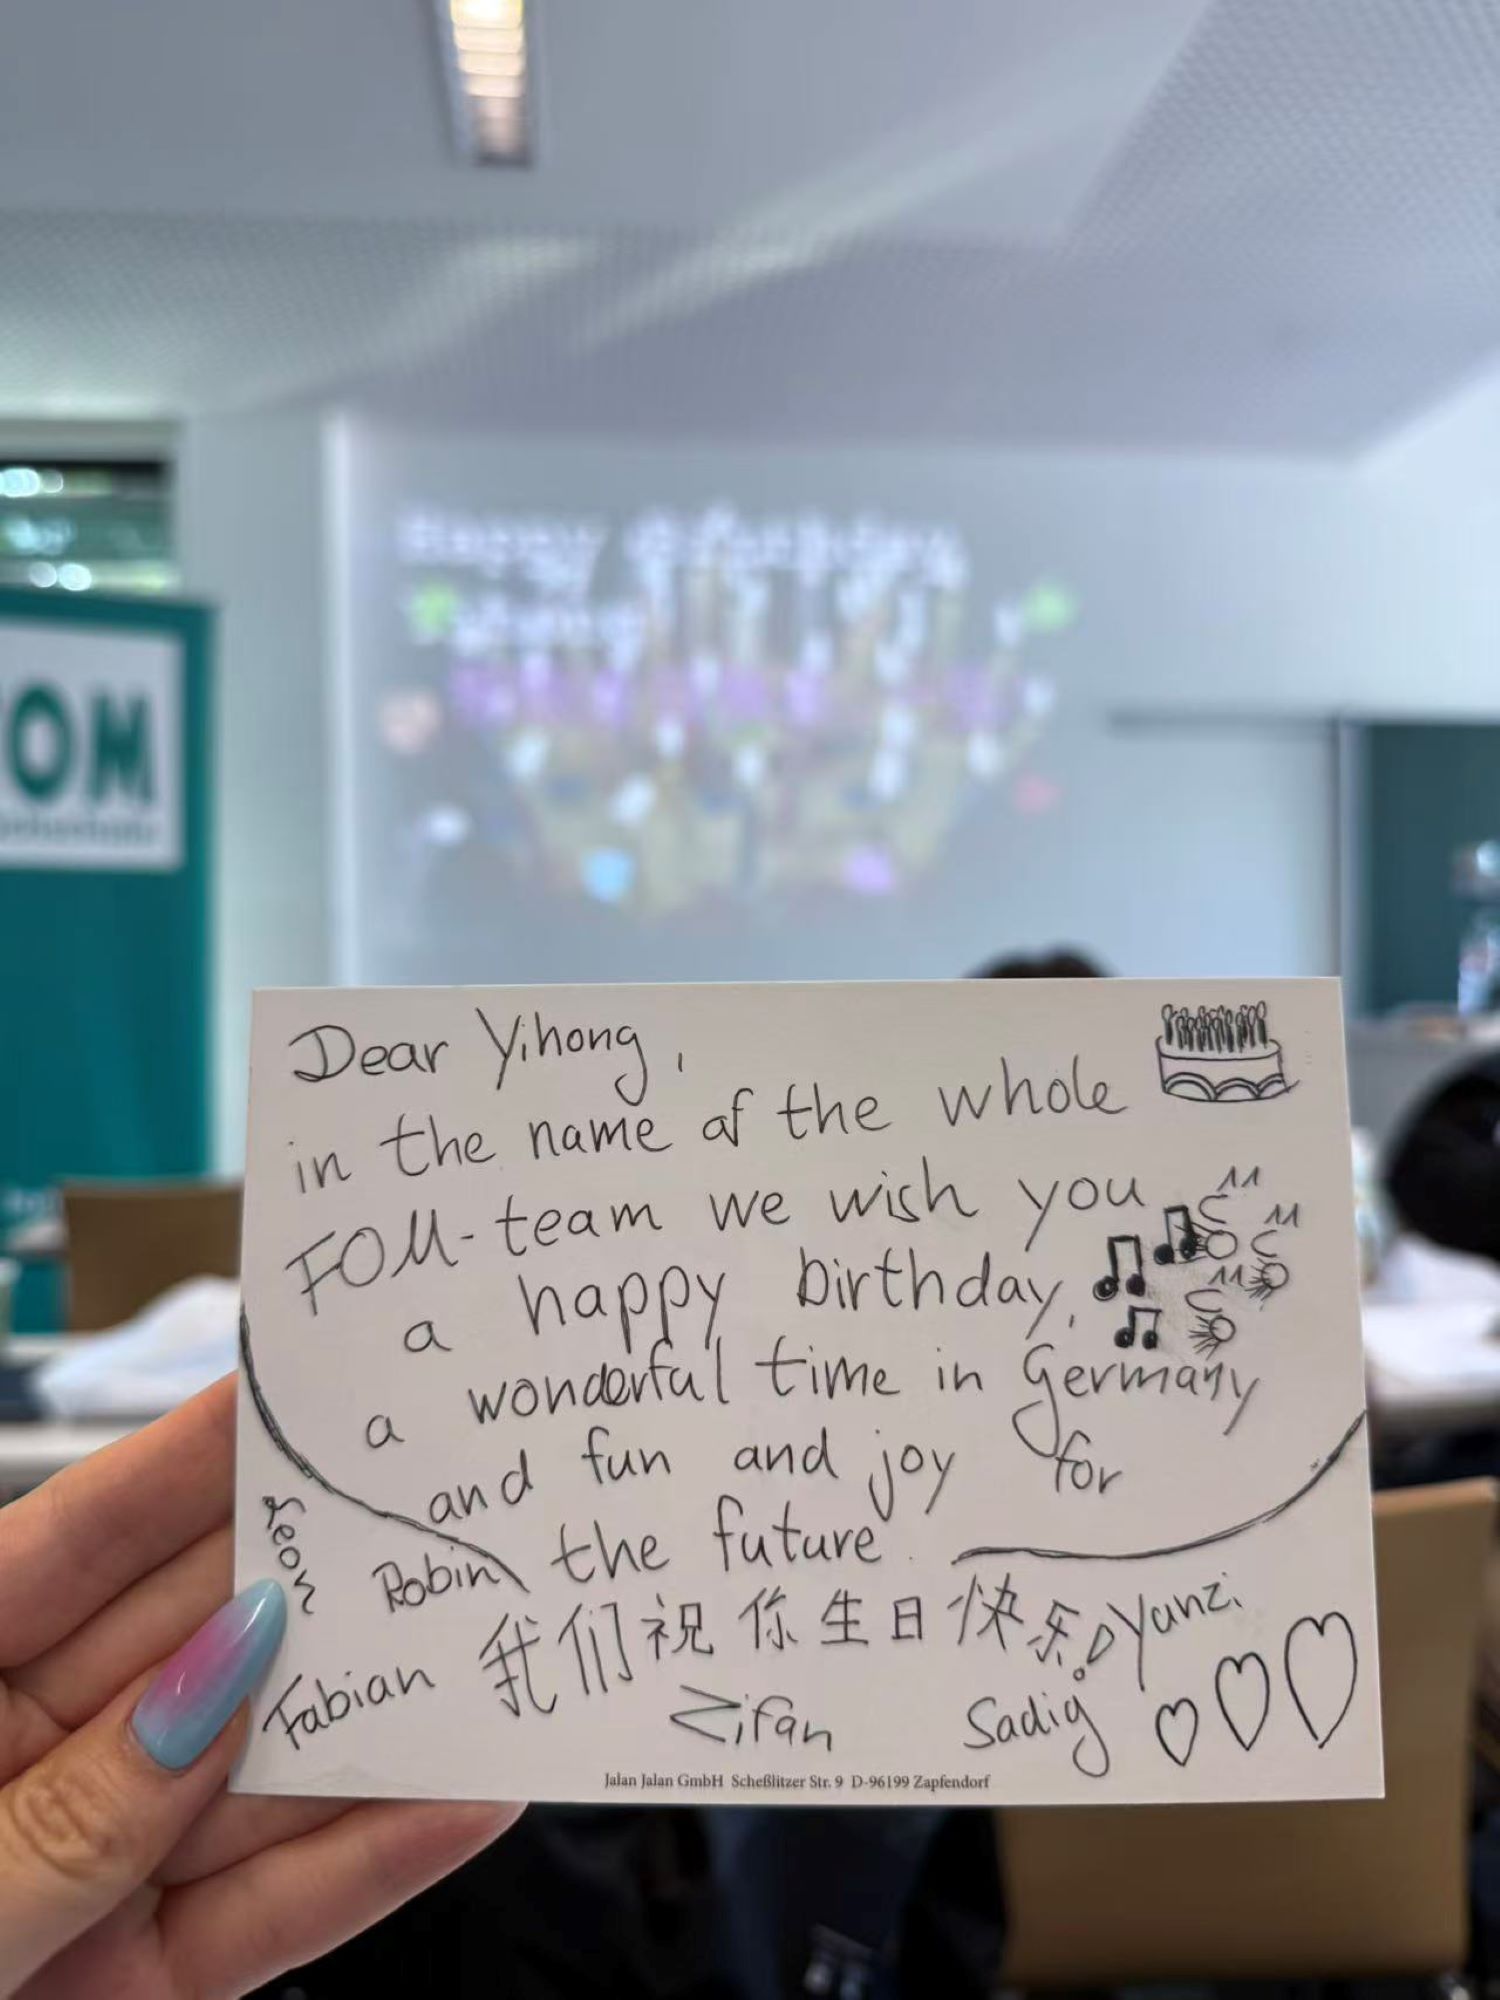 Happy Birthday
Yihong
OM
Hochschule
Dear Yihong,
in the name of the whole
FOM-team we wish you
a happy birthday,
a wonderful time in Germany
and fun and joy for
the future.
Leon
Robin
我们祝你生日快乐!
Yanzi
Fabian
Zifan
Sadig
Jalan Jalan GmbH Scheßlitzer Str. 9 D-96199 Zapfendorf